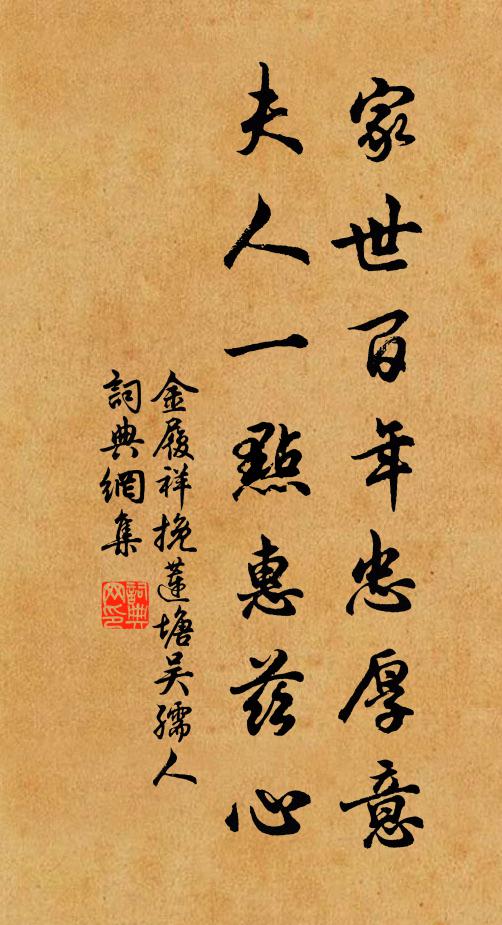 家世百年忠厚意
夫人一點惠茲心
金履祥挽蓮塘吳孺人
詞典網集
詞典
网印